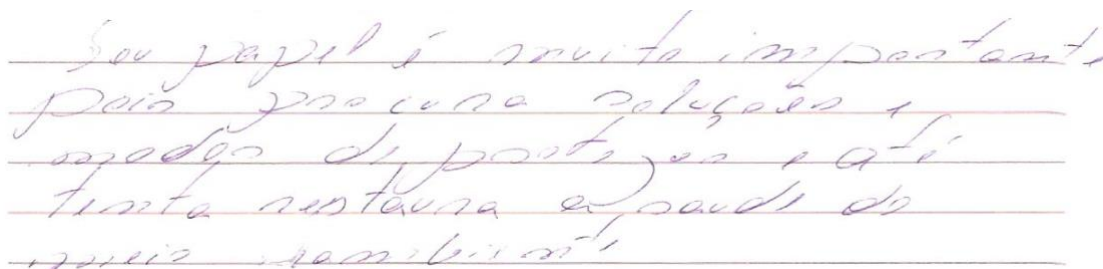 Seu papel é muito importante
pois procura soluções e
modos de proteger e até
tenta restaura a saude do
meio ambiente